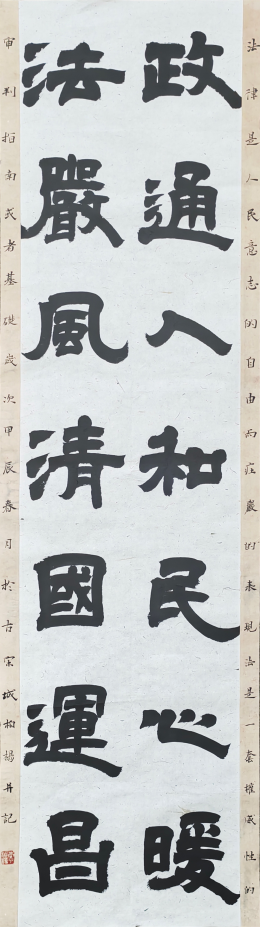 政通人和民心暖
法嚴風清國運昌
法律是人民意志的自由而莊嚴的表現法是一套權威性的
審判指南或者基礎歲次甲辰春月於古宋城柏楊并記